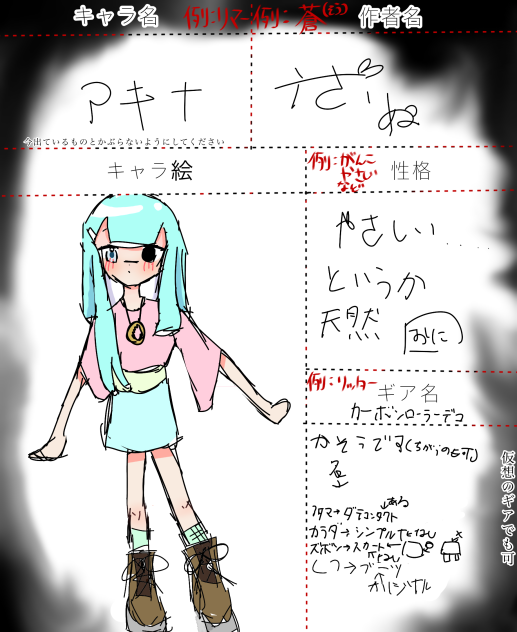 キャラ名
例:リマー
例: 蒼(そう)
作者名
アキナ
うざいぬ
今出ているものとかぶらないようにしてください
キャラ絵
例:がんこ
やさしい
など
性格
やさしい.....
というか
天然
おに
例:リッター
ギア名
カーボンローラーデコ
かそうです
アタマ→ダテコンタクト
ある
カラダ→シンプル
ズボン→スカート
くつ→ブーツ
オリジナル
仮想のギアでも可